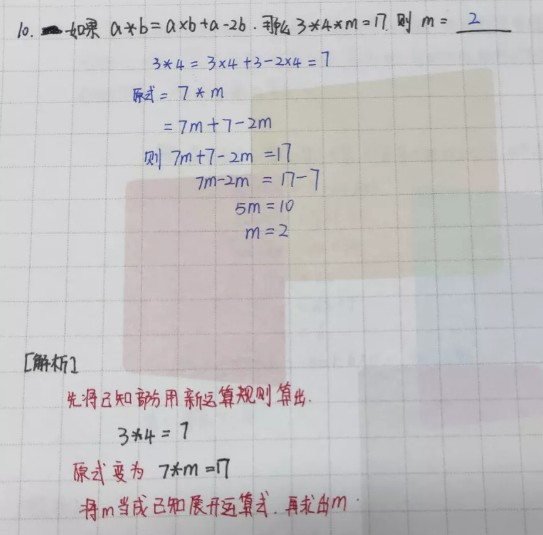 10. 如果 a*b=a×b+a-2b. 那么 3*4*m=17. 则 m= 2
3*4 = 3×4+3-2×4 = 7
原式 = 7*m
= 7m+7-2m
则 7m+7-2m =17
7m-2m = 17-7
5m = 10
m = 2
[解析]
先将已知部分用新运算规则算出.
3*4 = 7
原式变为 7*m =17
将m当成已知展开运算式. 再求出m.